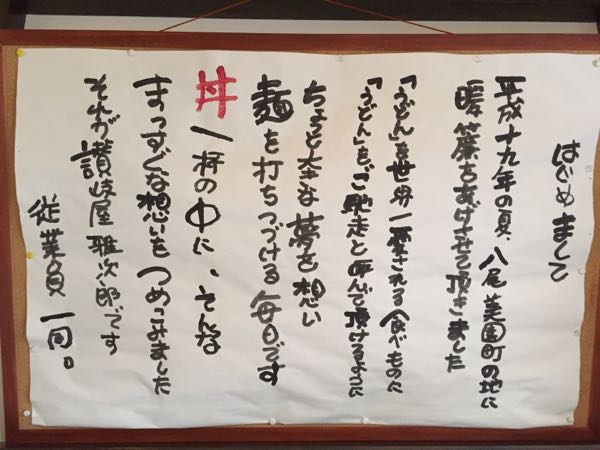 はじめまして
平成十九年の夏、八尾美園町の地に
暖簾をあげさせて頂きました
「うどん」を世界一愛される食べものに
「うどん」を、ご馳走と呼んで頂けるように
ちょっと大きな夢を想い
麺を打ちつづける毎日です
丼一杯の中に、そんな
まっすぐな想いをつめこみました
それが讃岐屋雅次郎です
従業員一同。